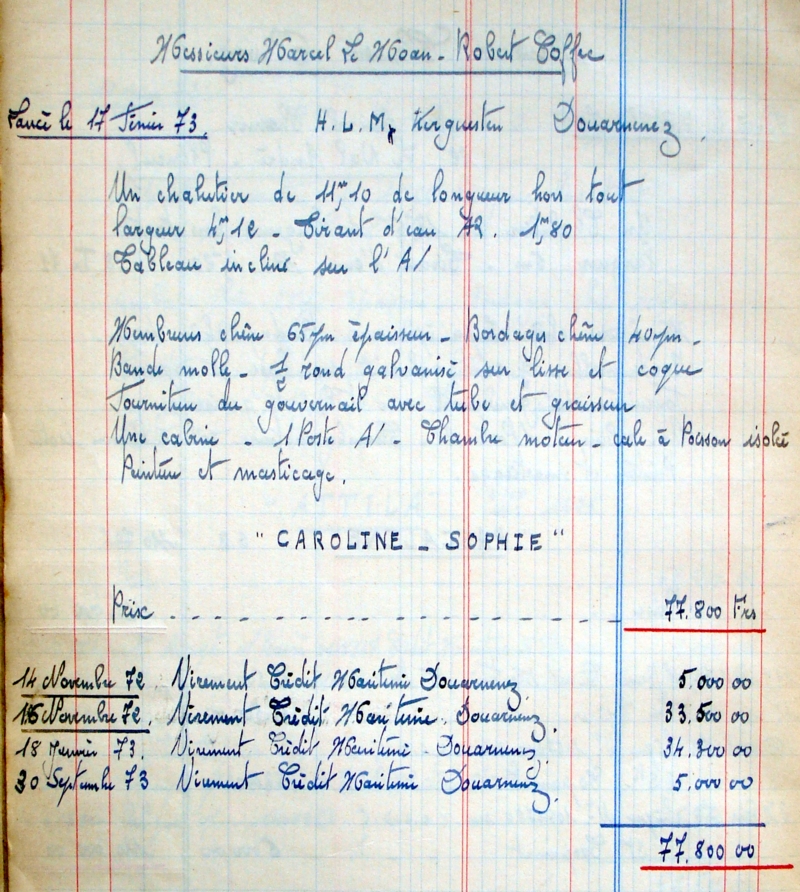 Messieurs Marcel Le Moan - Robert Coffec
Lancé le 17 Février 73. H.L.M, Kerguesten Douarnenez.
Un chalutier de 11m,10 de longueur hors tout
largeur 4m,12 - Tirant d'eau AR. 1m,80
Tableau incliné sur l'A/
Membrures chêne 65 m/m épaisseur - Bordages chêne 40 m/m -
Bande molle - 1/2 rond galvanisé sur lisse et coque
Fourniture du gouvernail avec tube et graisseur
Une cabine - 1 Poste A/ - Chambre moteur - cale à Poisson isolée
Peinture et masticage.
"CAROLINE - SOPHIE"
Prix . . . . . . . . . . . . . . . . . . 77.800 Frs
14 Novembre 72. Virement Crédit Maritime Douarnenez 5.000 00
16 Novembre 72. Virement Crédit Maritime. Douarnenez. 33.500 00
18 Janvier 73. Virement Crédit Maritime - Douarnenez. 34.300 00
30 Septembre 73 Virement Crédit Maritime Douarnenez 5.000 00
77.800 00